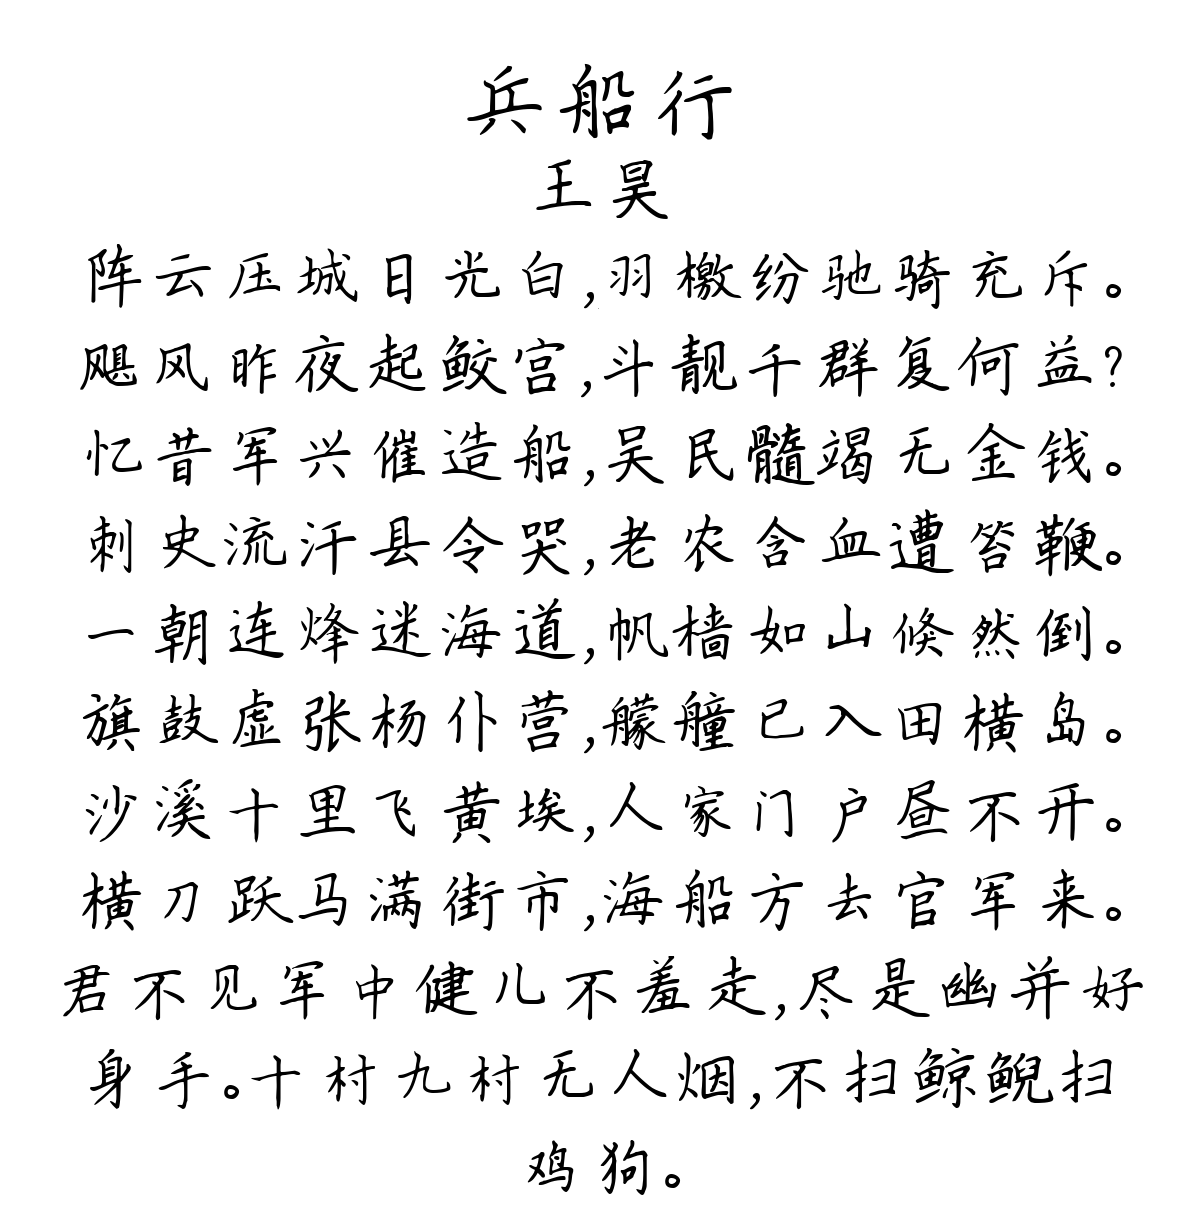 兵船行
王昊
阵云压城日光白,羽檄纷驰骑充斥。
飓风昨夜起鲛宫,斗舰千群复何益?
忆昔军兴催造船,吴民髓竭无金钱。
刺史流汗县令哭,老农含血遭笞鞭。
一朝连烽迷海道,帆樯如山倏然倒。
旗鼓虚张杨仆营,艨艟已入田横岛。
沙溪十里飞黄埃,人家门户昼不开。
横刀跃马满街市,海船方去官军来。
君不见军中健儿不羞走,尽是幽并好
身手。十村九村无人烟,不扫鲸鲵扫
鸡狗。